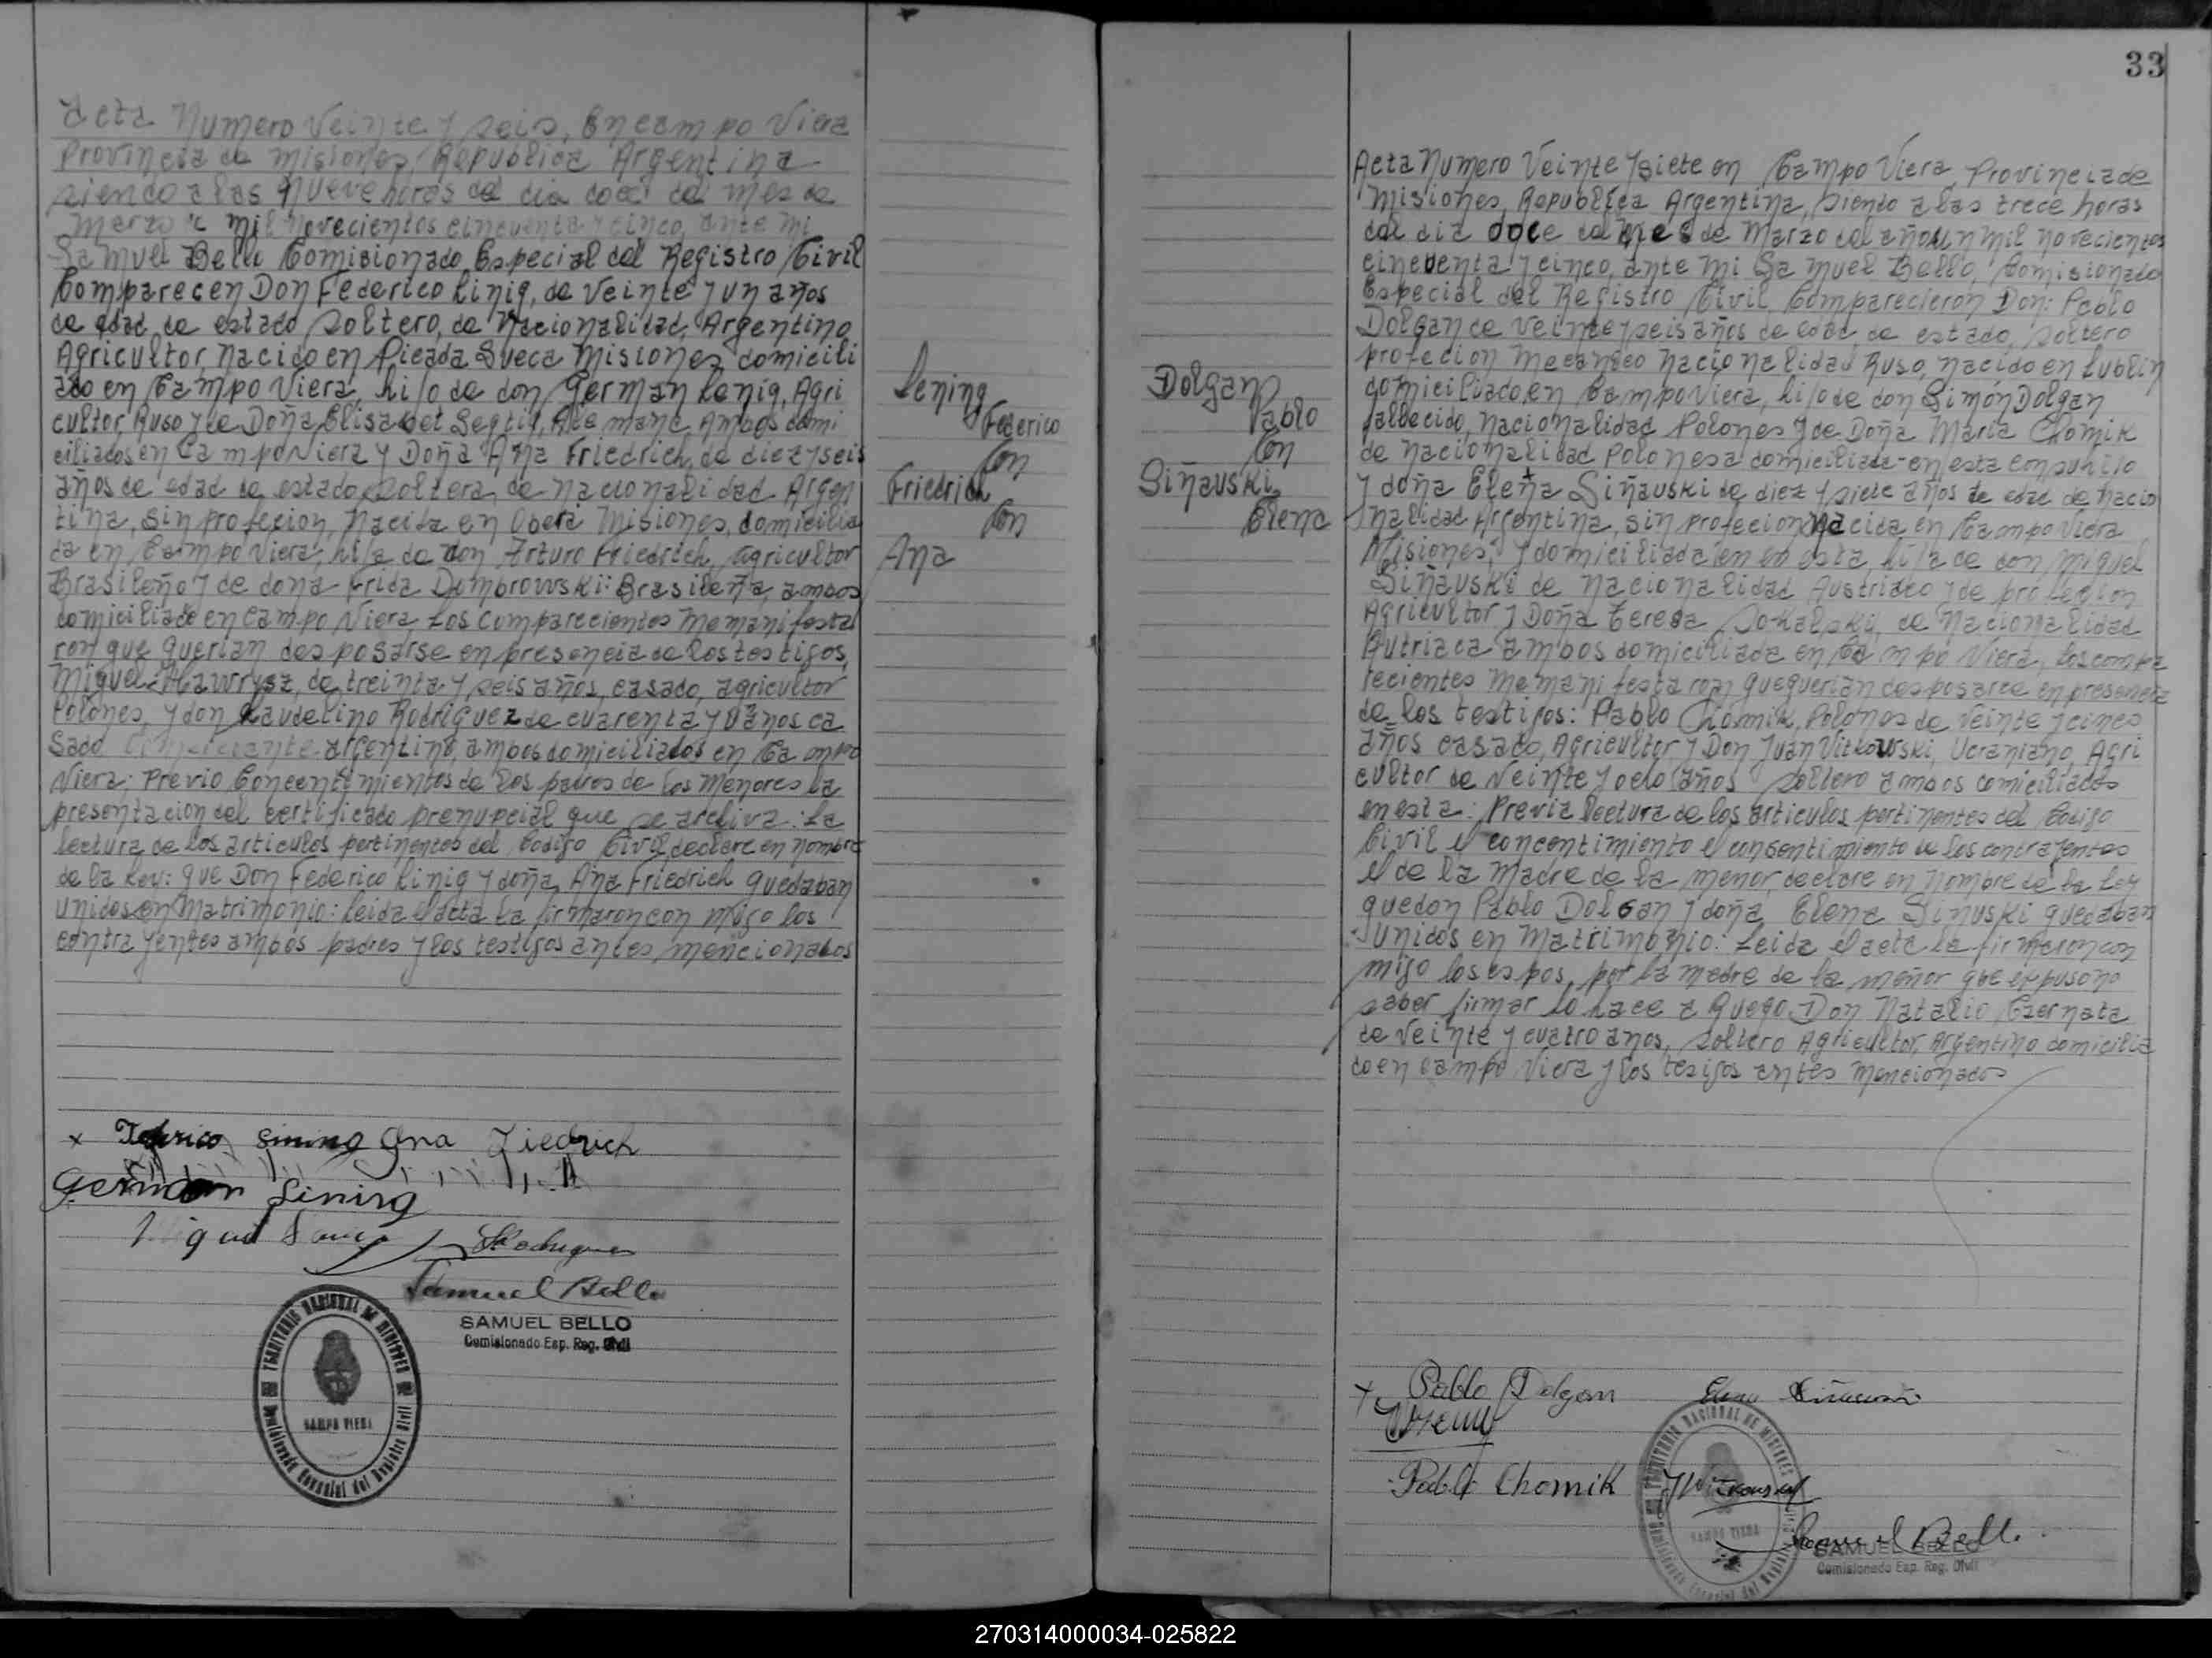 Acta Numero Veinte y seis, En campo Viera
Provincia de Misiones, Republica Argentina
siendo a las nueve horas del dia doce del mes de
Marzo mil novecientos cincuenta y cinco, ante mi
Samuel Bello Comisionado Especial del Registro Civil
Comparecen Don Federico Linig, de Veinte y un años
de edad, de estado soltero, de Nacionalidad, Argentino
Agricultor, nacido en Picada Sueca Misiones domicili
ado en Campo Viera, hijo de don German Lenig, Agri
cultor, Ruso y de Doña Elisabet Alemana, Ambos domi
ciliados en Campo Viera y Doña Ana Friedrich, de diez y seis
años de edad de estado soltera, de nacionalidad Argen
tina, sin profecion, Nacida en Oberá Misiones, domicilia
da en Campo Viera, hija de don Arturo Friedrich, agricultor
Brasileño y de dona Frida Dombrowski: Brasileña, ambos
domiciliade en Campo Viera, Los Comparecientes Me manifesta
ron que querian desposarse en presencia de los testigos,
Miguel Hawrysz, de treinta y seis años, casado, agricultor
Polones, y don Laudelino Rodriguez de cuarenta y un años ca
sado argentino, ambos domiciliados en Campo
Viera; Previo Concentimientos de los padres de los Menores la
presentacion del certificado prenupcial que se archiva: La
lectura de los articulos pertinentes del Codigo Civil declare en nombre
de la Ley: que Don Federico Linig y doña, Ana Friedrich quedaban
unidos en Matrimonio: leida el acta la firmaron con migo los
contrayentes ambos padres y los testigos antes mencionados
Lening
Federico
Con
Friedrich
Con
Ana
Federico Lining Ana Friedrich
German Lining
Samuel Bello
SAMUEL BELLO
Comisionado Esp. Reg. Civil
TERRITORIO NACIONAL DE MISIONES
CAMPO VIERA
Comisionado Especial del Registro Civil
33
Dolgan
Pablo
Con
Siñauski
Elena
Acta Numero Veinte y siete en Campo Viera, Provincia de
Misiones, Republica Argentina, siendo a las trece horas
del dia doce del mes de Marzo del año un mil novecientos
cincuenta y cinco, ante mi Samuel Bello, Comisionado
Especial del Registro Civil, Comparecieron Don: Pablo
Dolgan de veinte y seis años de edad, de estado, soltero
profecion Mecanico Nacionalidad Ruso, nacido en Lublin
domiciliado en Campo Viera, hijo de don Simón Dolgan
fallecido, nacionalidad Polones y de Doña Maria Chomik
de nacionalidad Polonesa domiciliada en esta con su hijo
y doña Elena Siñauski de diez y siete años de edad de nacio
nalidad Argentina, sin profecion nacida en Campo Viera
Misiones, y domiciliada en en esta, hija de don Miguel
Siñauski de nacionalidad Austriaco y de profecion
Agricultor y Doña Teresa Sokalski, de nacionalidad
Autriaca ambos domiciliade en Campo Viera, los compa
recientes me manifestaron que querian desposarce en presencia
de los testigos: Pablo Chomik, Polones de veinte y cinco
años casado, Agricultor y Don Juan Vitkowski, Ucraniano, Agri
cultor de Veinte y ocho años soltero ambos comiciliados
en esta: Previa lectura de los articulos pertinentes del Codigo
Civil el concentimiento el consentimiento de los contrayentes
el de la madre de la menor, declare en Nombre de la Ley
que don Pablo Dolgan y doña, Elena Siñuski quedaban
unidos en Matrimonio: Leida el acta la firmaron con
migo los espos, por la madre de la menor que expuso no
saber firmar lo hace a Ruego Don Natalio Czernata
de Veinte y cuatro años, soltero Agricultor, Argentino domicilia
do en Campo Viera y los tesigos antes mencionados
Pablo Dolgan Elena
Pablo Chomik
Samuel Bello
SAMUEL BELLO
Comisionado Esp. Reg. Civil
CAMPO VIERA
270314000034-025822